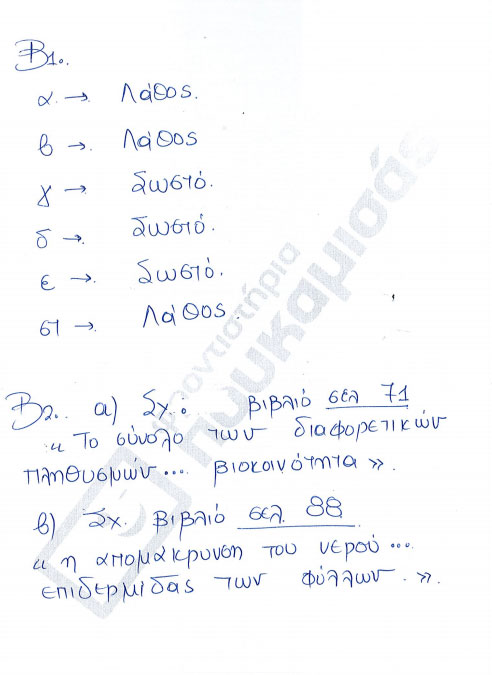 Β1.
α → Λάθος.
β → Λάθος
γ → Σωστό.
δ → Σωστό.
ε → Σωστό.
στ → Λάθος.
Β2. α) Σχ. βιβλίο σελ 71
« Το σύνολο των διαφορετικών
πληθυσμών... βιοκοινότητα ».
β) Σχ. βιβλίο σελ. 88
« η απομάκρυνση του νερού ...
επιδερμίδας των φύλλων. ».
φροντιστήρια
πουκαμισάς